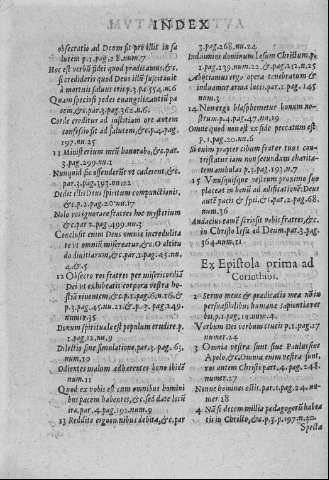 INDEX
obsecratio ad Deum sit pro illis in sa
lutem p.1.pag.28.num.7
Hoc est verbū fidei quod prædicamus, &c.
si credideris quod Deus illū suscitauit
à mortuis saluus eris p.3.pa.554.n.6
Quàm speciosi pedes euangelizantiū pa
cem, &c.par.3.pag.362
Corde creditur ad iustitiam ore autem
confessio fit ad salutem, &c.p.4.pag.
197.nu.25
11 Ministerium meū honorabo, &c.par.
3.pag.299.nu.1
Nunquid sic offenderūt vt caderent, &c.
par.3.pag.393.nu.22
Dedit illis Deus spiritum compunctionis,
&c.p.2.pag.20.nu.17
Nolo vos ignorare fratres hoc mysterium
&c.par.2.pag.499.nu.7
Conclusit enim Deus omnia in incredulita
te vt omniū misereatur, &c.O altitu
do diuitiarū, &c.par.2.pag.45.nu.
4.&.5
12 Obsecro vos fratres per misericordiā
Dei vt exhibeatis corpora vestra ho-
stiā viuentem, &c.p.1.pag.6.n.16.&
p.3.pag.45.nu.21.&.p.9.pag.249.
numer.35
Donum spirituale est populum erudire.p.
1.pag.12.nu.9
Dilectio sine simulatione.par.3.pag.63,
num.19
Odientes malum adhærentes bono ibidē
num.11
Quod ex vobis est cum omnibus homini
bus pacem habentes, &c.sed date locū
ira.par.4.pag.192.num.9
13 Reddite ergo omnibus debita, &c.par
3.pag.268.nu.24
Induimini dominum Iesum Christum.p.
1.pag.239.num.22.&.pag.212.n.25
Abyciamus ergo opera tenebrarum &
induamur arma lucis.par.1.pag.145
num.3
14 Ne ergo blasphemetur bonum no-
strum.p.4.pag.47.nu.19
Omne quod non est ex fide peccatum est
p.1.pag.20.nu.6
Si enim propter cibum frater tuus con-
tristatur iam non secundum charita-
tem ambulas p.3.pag.193.n.7
15 Vnusquisque vestrum proximo suo
placeat in bonū ad ædificationē: Deus
autē pacis & spei, &c.par.2.pag.68.
num.36
Audacius tamē scripsi vobis fratres, &c.
in Christo Iesu ad Deum.par.3.pag.
364.num.11
Ex Epistola prima ad
Corinthios.
2 Sermo meus & prædicatio mea nō in
persuasibilibus humanæ sapientiæ ver
bis.p.1.pag.13.num.4.
Verbum Dei verbum crucis p.1.pag.17
numer.24
3 Omnia vestra sunt siue Paulus siue
Apolo, &c.Omnia enim vestra sunt,
vos autem Christi part.4.pag.248.
numer.27
Nunc homines estis.par.1.pag.24.nu-
mer 28
4 Nā si decem millia pædagogorū habea
tis in Christo, &c.p.3.p.197.n.20.
Specta